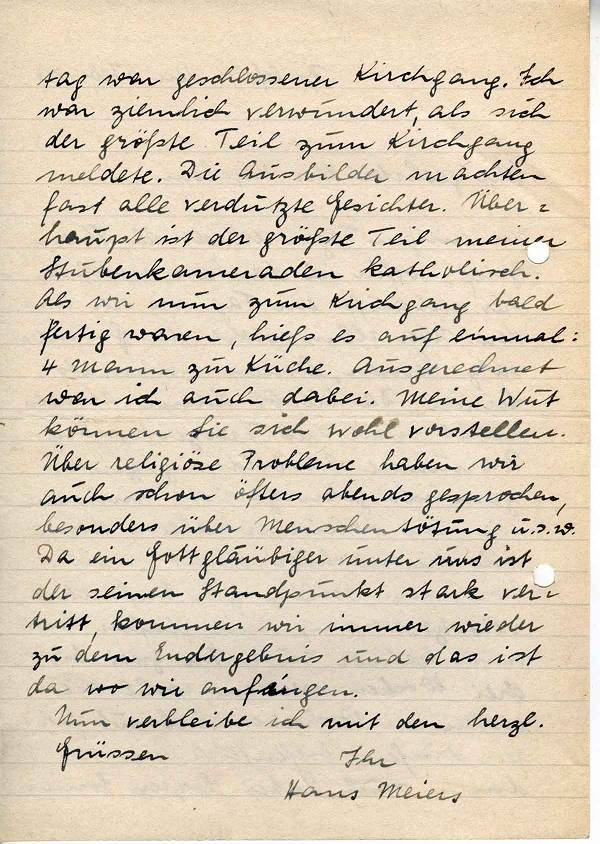 tag war geschlossener Kirchgang. Ich
war ziemlich verwundert, als sich
der größte Teil zum Kirchgang
meldete. Die Ausbilder machten
fast alle verdutzte Gesichter. Über=
haupt ist der größte Teil meiner
Stubenkameraden katholisch.
Als wir nun zum Kirchgang bald
fertig waren, hieß es auf einmal:
4 Mann zur Küche. Ausgerechnet
war ich auch dabei. Meine Wut
können Sie sich wohl vorstellen.
Über religiöse Probleme haben wir
auch schon öfters abends gesprochen,
besonders über Menschentötung u.s.w.
Da ein Gottgläubiger unter uns ist
der seinen Standpunkt stark ver=
tritt, kommen wir immer wieder
zu dem Endergebnis und das ist
da wo wir anfingen.
Nun verbleibe ich mit den herzl.
Grüssen
Ihr
Hans Meiers